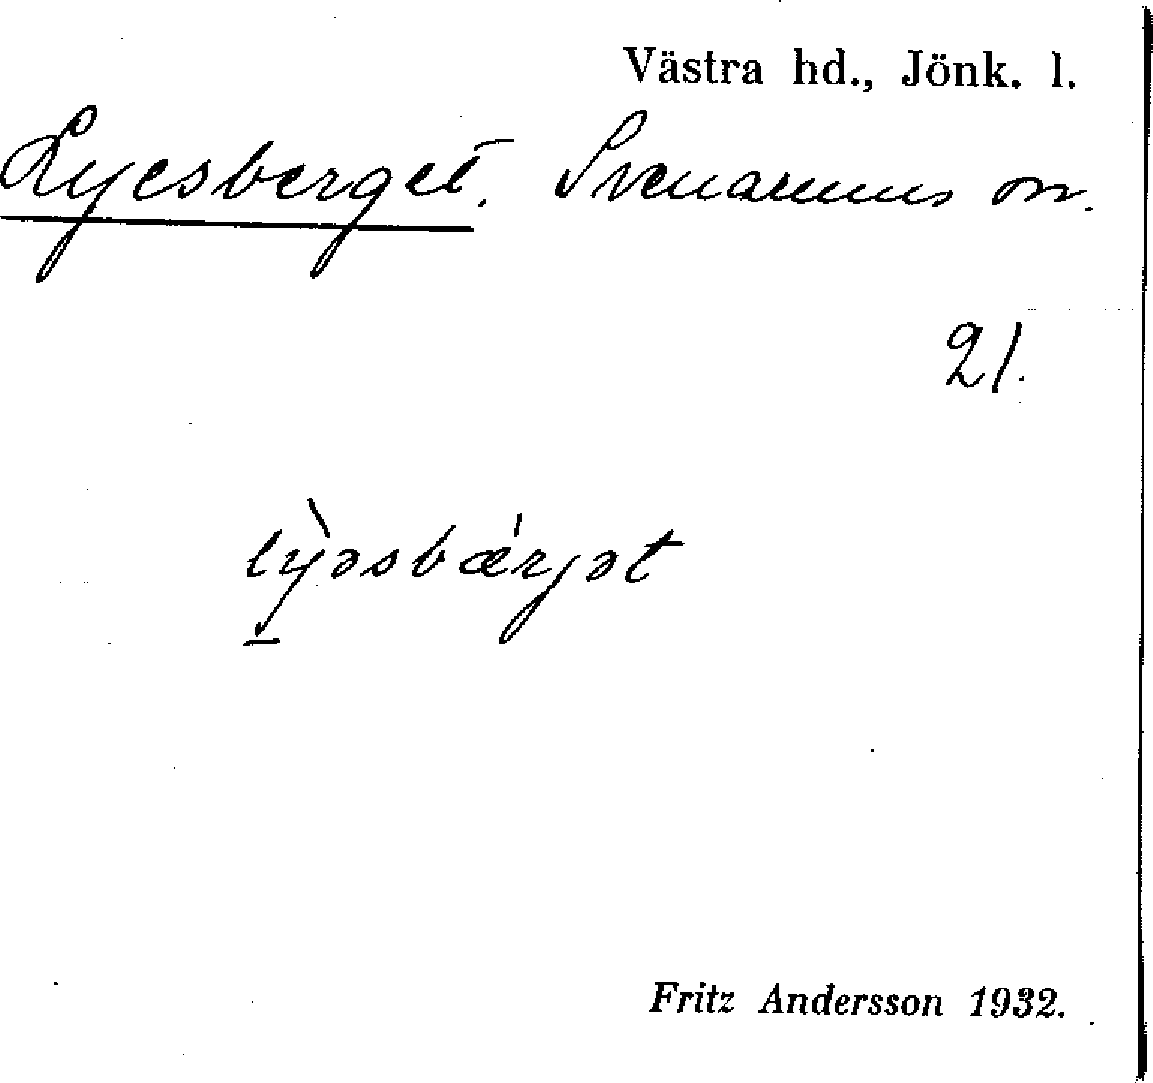 Västra hd., Jönk. l.
Lyesberget. Svenarums sn.
21.
lỳəsbǽrjət
Fritz Andersson 1932.